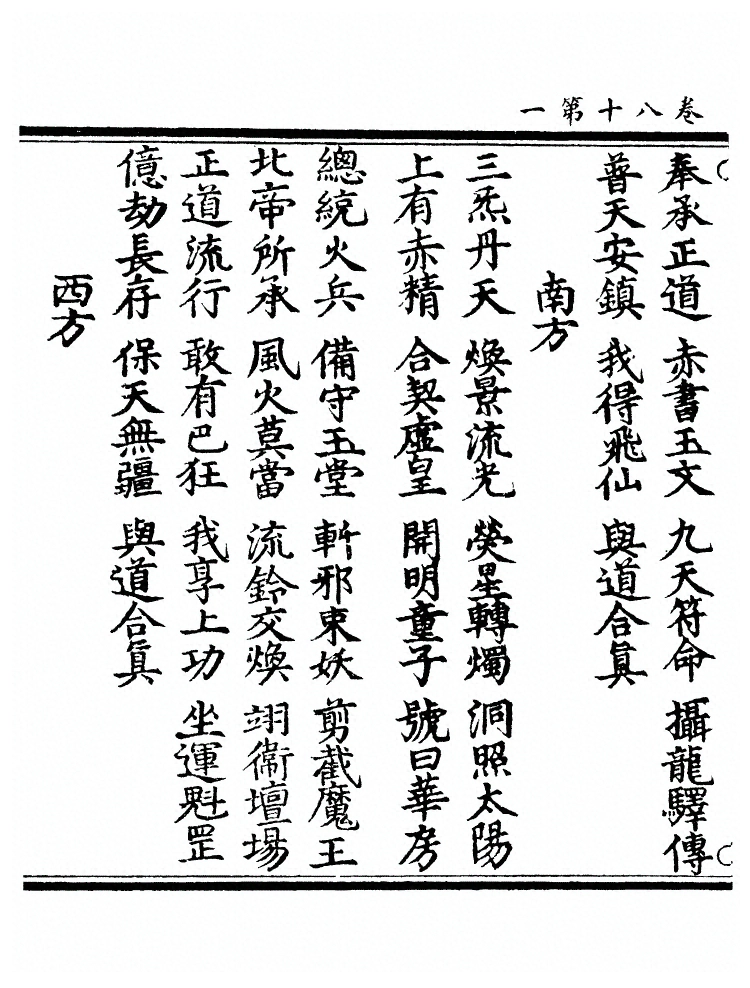 卷八十第一
奉承正道 赤書玉文 九天符命 攝龍驛傳
普天安鎮 我得飛仙 與道合眞
南方
三炁丹天 煥景流光 熒星轉燭 洞照太陽
上有赤精 合契虛皇 開明童子 號曰華房
總統火兵 備守玉堂 斬邪束妖 剪截魔王
北帝所承 風火莫當 流鈴交煥 翊衛壇場
正道流行 敢有巴狂 我享上功 坐運魁罡
億劫長存 保天無疆 與道合眞
西方